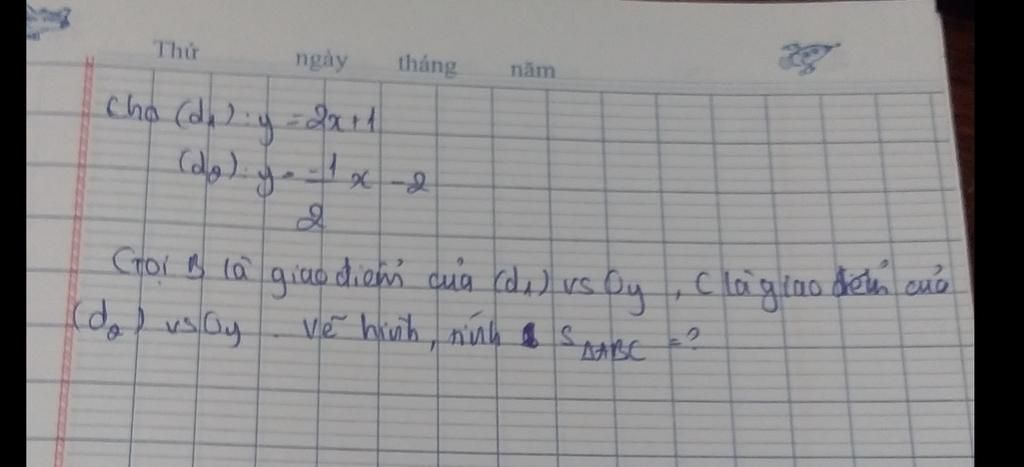 Thứ ngày tháng năm
Cho (d₁): y = 2x+1
(d₂): y = -1/2 x -2
Gọi B là giao điểm của (d₁) vs Oy, C là giao điểm của
(d₂) vs Oy. Vẽ hình, tính S△ABC = ?